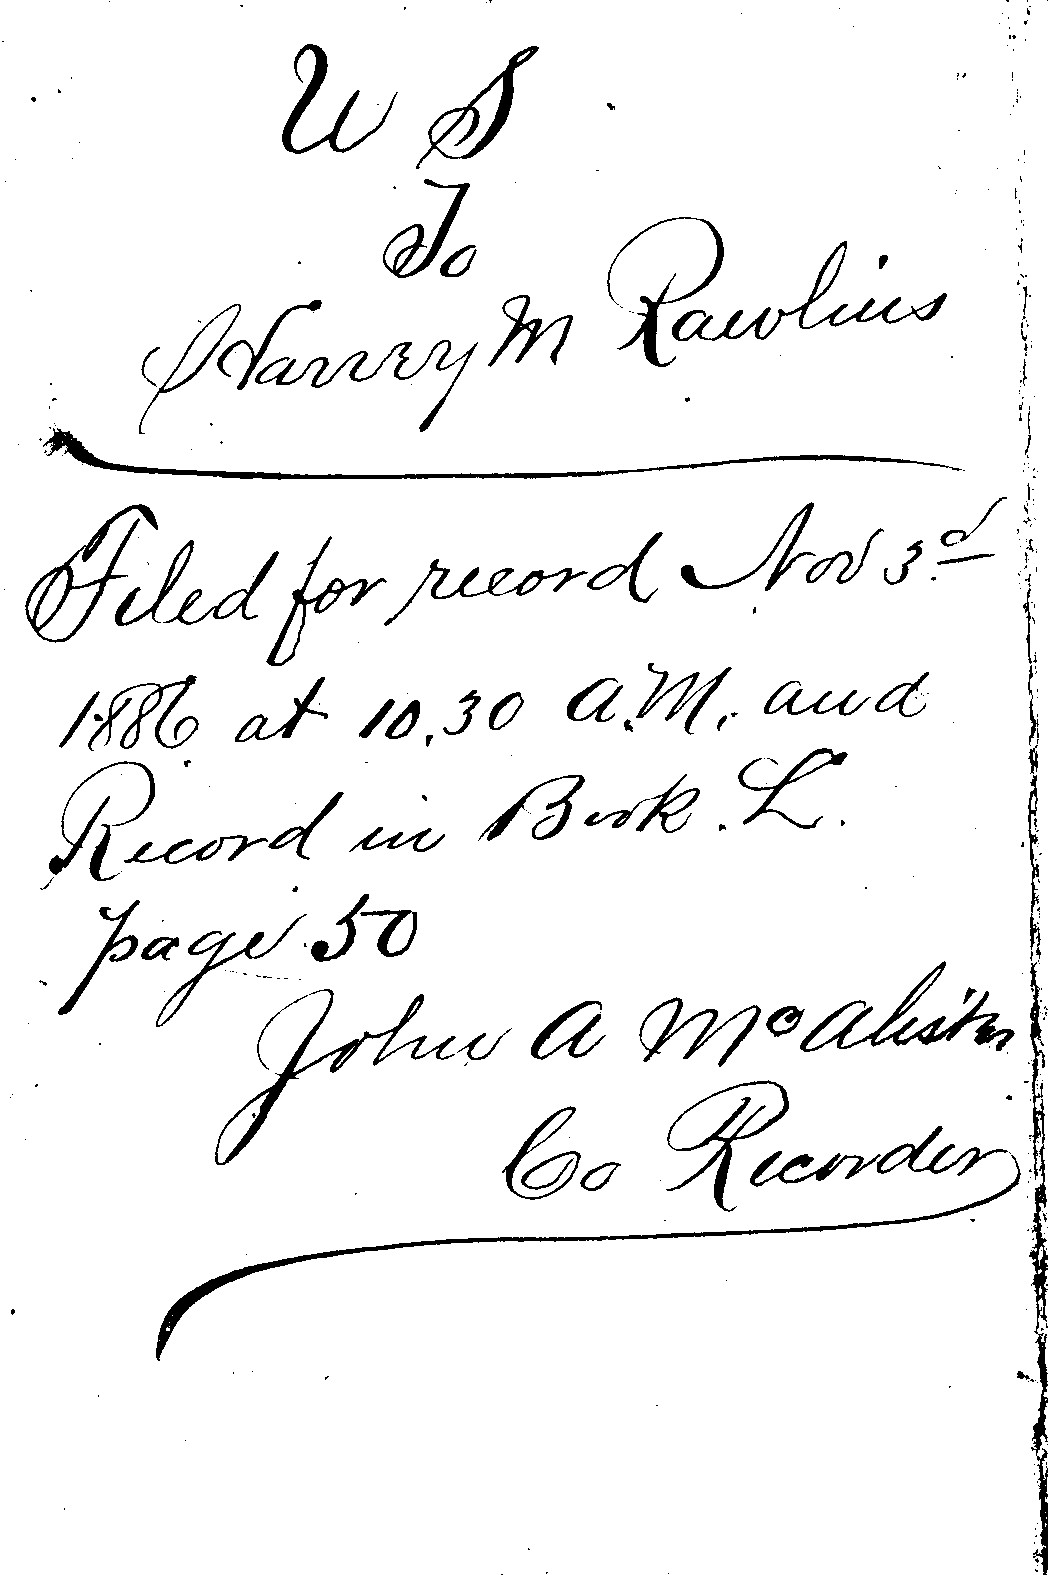 U S
To
Harvey M Rawlins
Filed for record Nov 3.d
1886 at 10.30 A.M. and
Record in Book. L.
page 50
John A McAlister
Co Recorder